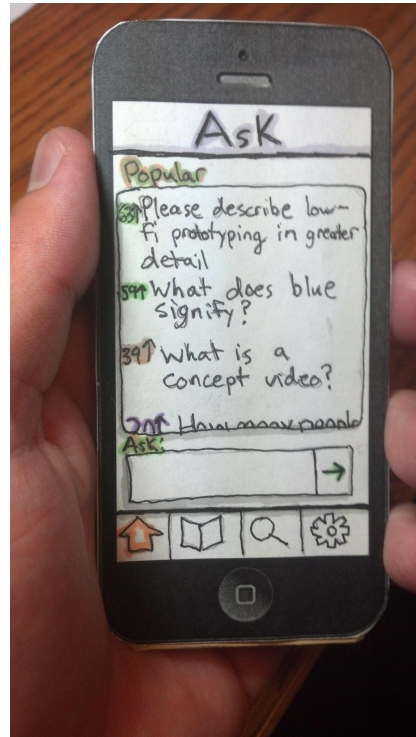 Ask
Popular
63↑ Please describe low-
fi prototyping in greater
detail
59↑ What does blue
signify?
39↑ What is a
concept video?
20↑ How many people
Ask: